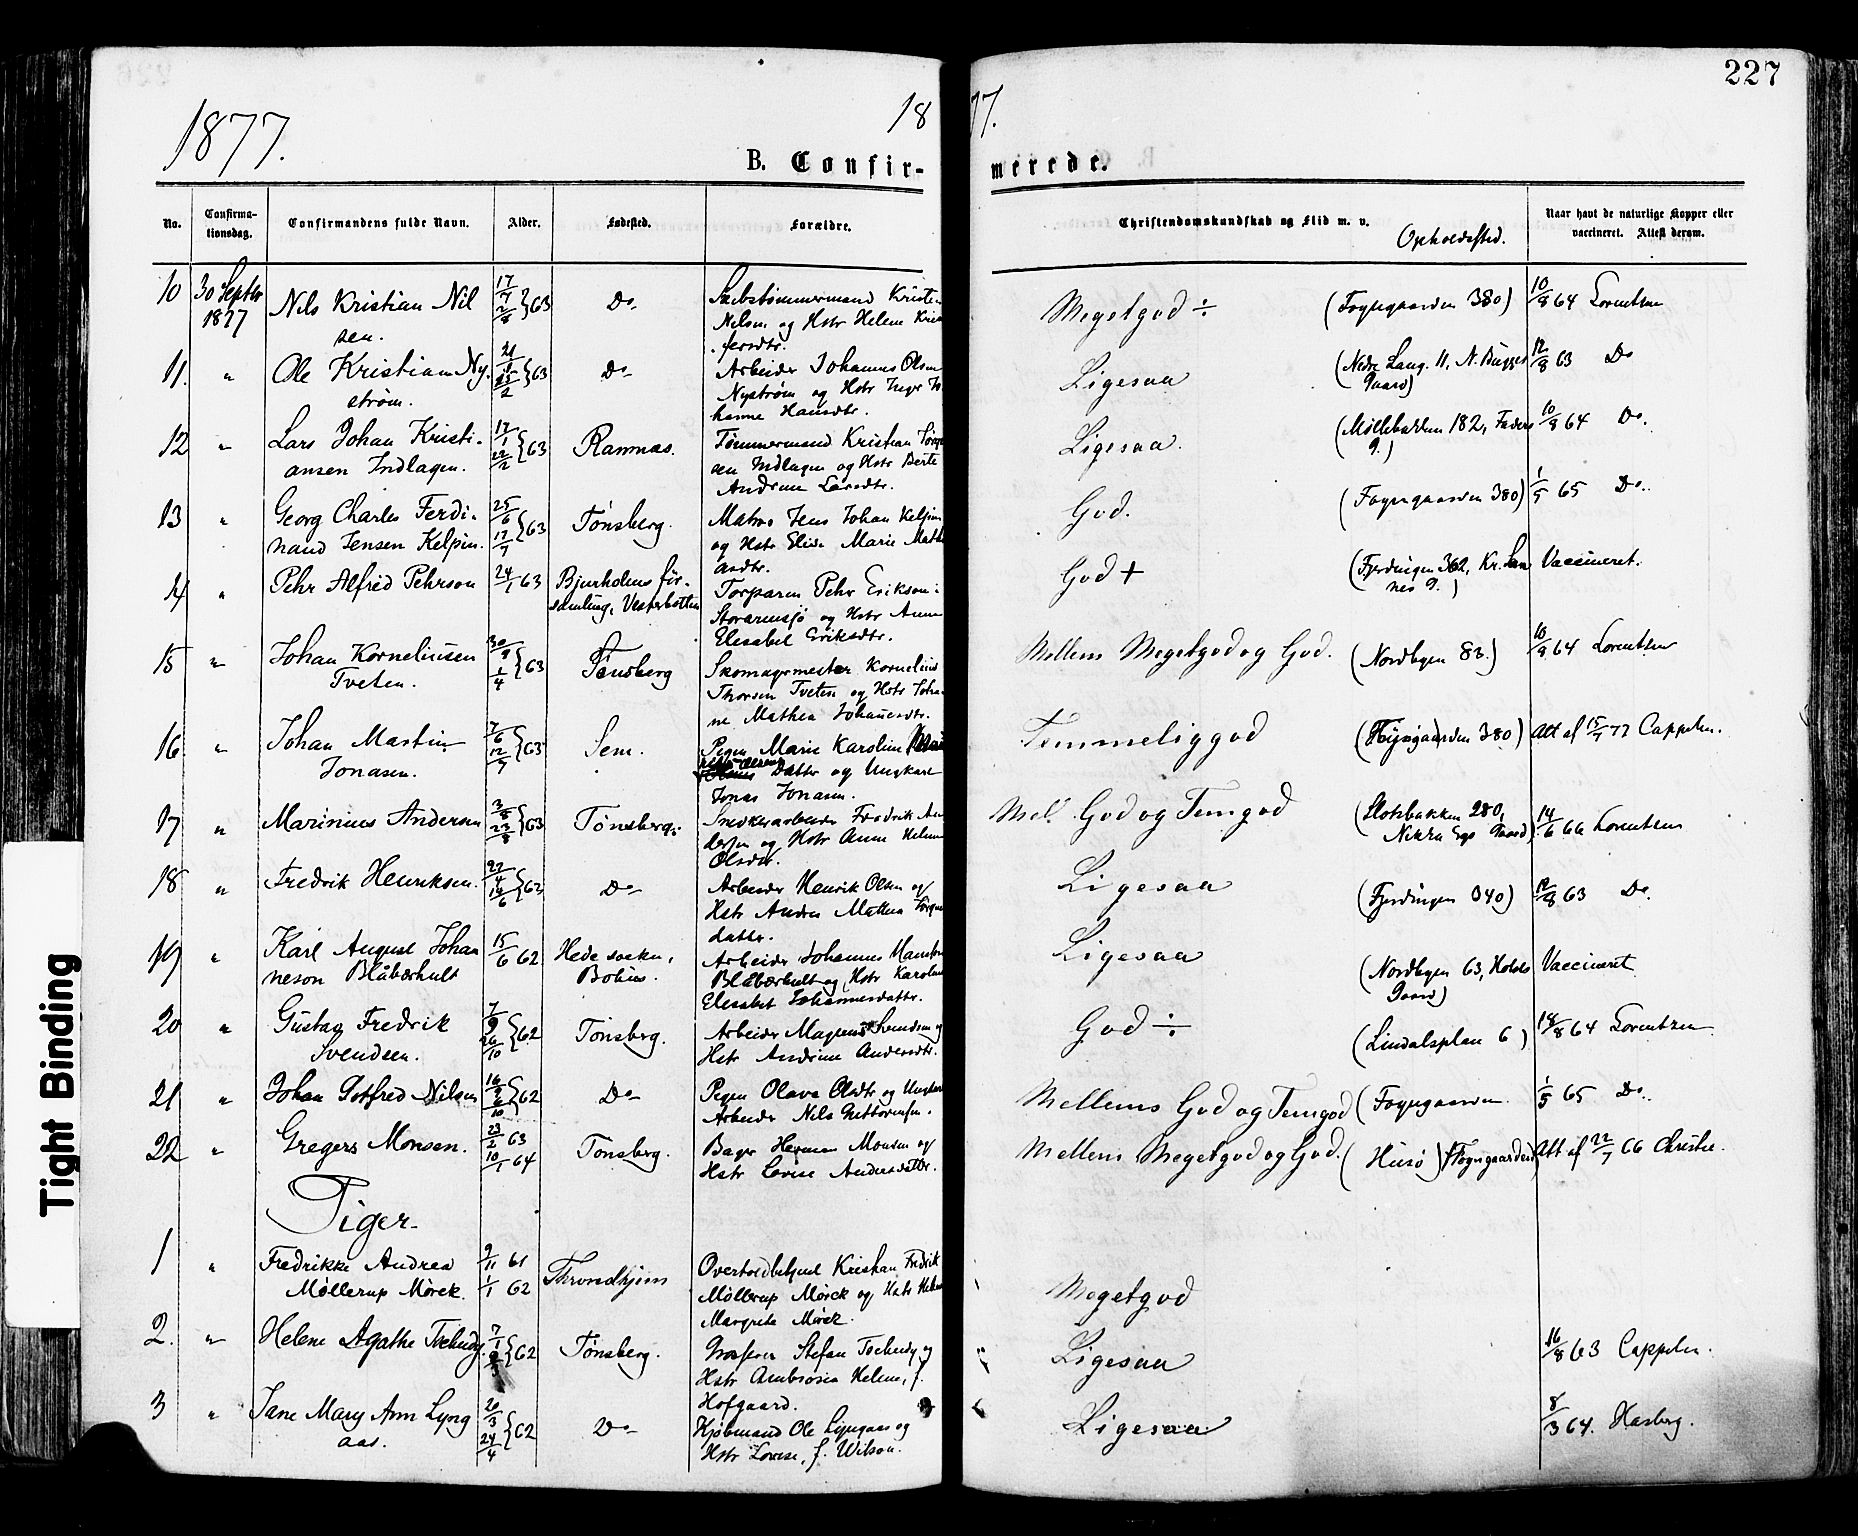 227
1877.
18
77.
B. Confir-
merede.
No.
Confirma-
tionsdag.
Confirmandens fulde Navn.
Alder.
Fødested.
Forældre.
Christendomskundskab og Flid m. v.
Opholdssted.
Naar havt de naturlige Kopper eller
vaccineret. Attest derom.
10 30 Septbr Nils Kristian Nil 17/7 2/8 } 63 Do Kristen
1877 sen. Nilsen og Hstr Helene
Megetgod ÷ (Føyngaarden 380) 10/8 64 Lorentzen
11. " Ole Kristian Ny. 63 Do Arbeider Johannes Olsen
strøm. Nystrøm og Hstr Inger Jo
hanne Hansdtr.
Ligesaa (Nedre Lang. 11, N. Bugges 12/8 63 Do
Gaard)
12 " Lars Johan Kristi- 17/1 22/2 } 63 Ramnæs. Tømmermand Kristian
ansen Indlagen. sen Indlagen og Hstr Berte
Andrine Larsdtr.
Ligesaa. (Møllebakken 182, 10/8 64 Do.
G.)
13 " Georg Charles Ferdi- 25/6 17/7 } 63 Tønsberg. Matros Jens Johan Kelpin
nand Jensen Kelpin. og Hstr Elise Marie
God. (Føyngaarden 380) 1/5 65 Do.
14 " Pehr Alfred Pehrson 24/1 63 Bjurholms för- Torparen Pehr Erikson i
samling, Vesterbotten og Hstr Anna
Elisabet Eriksdtr.
God + (Fjerdingen 362, Kr. Vaccineret.
nes G.)
15 " Johan Korneliusen 30/9 1/4 } 63 Tønsberg Skomagermester Kornelius
Tveten. Thorsen Tveten og Hstr Joha
ne Mathea Johannesdtr.
Mellem Megetgod og God. (Nordbyen 83.) 10/9 64 Lorentzen
16 " Johan Martin 7/6 12/7 } 63 Sem. Pigen Marie Karoline
Jonasen. Datter og Ungkarl
Jonas Jonasen.
Temmeliggod 380) Att af 15/7 77 Cappelen.
17 " Marinius Andersen 3/8 23/8 } 63 Tønsberg. Snedkerarbeider Fredrik An
dersen og Hstr Anne Helene
Olsdtr.
Mel. God og Temgod (Slotsbakken 280, 14/6 66 Lorentzen
Gaard)
18 " Fredrik Henriksen. 63 Do Arbeider Henrik Olsen og
Hstr Andrea Mathea
datter.
Ligesaa (Fjerdingen 340) 12/8 63 Do.
19 " Karl August Johan 15/6 62 Hede socken, Arbeider Johannes
neson Blåbærhult Bohus. Blåbærhult og Hstr Karoline
Elisabet Johannesdatter.
Ligesaa (Nordbyen 63, Holsts Vaccineret
Gaard)
20 " Gustav Fredrik 7/9 26/10 } 62 Tønsberg. Arbeider Magnus Svendsen og
Svendsen. Hstr Andrine Andersdtr.
God ÷ (Lindalsplan 6) 18/8 64 Lorentzen
21 " Johan Gotfred Nilsen 62 Do Pigen Olava Olsdtr og Ungkarl
Arbeider Nils Guttormsen.
Mellem God og Temgod (Føyngaarden. 1/5 65 Do.
22 " Gregers Monsen. 23/2 63 Tønsberg. Bager Herman Monsen og
10/1 64 Hstr Lovise Andersdatter.
Mellem Megetgod og God. (Husø) (Føyngaarden) Att af 22/7 66 Christie.
Piger.
1 " Fredrikke Andrea 9/11 61 Throndhjem Overtoldbetjent Kristian Fredrik
Møllerup Mörck. 1/1 62 Møllerup Mörck og Hstr Helene
Margrete Mörck.
Megetgod
2. " Helene Agathe Tschudy. 62 Tønsberg. Grosserer Stefan Tschudy og
Hstr Ambrosia Helene, f.
Hofgaard.
Ligesaa 16/8 63 Cappelen.
3 " Jane Mary Ann Lyng 20/3 24/4 } 62 Do Kjøbmand Ole Lyngaas og
aas. Hstr Lovise, f. Wilson.
Ligesaa 8/3 64. Hasberg.
Tight Binding